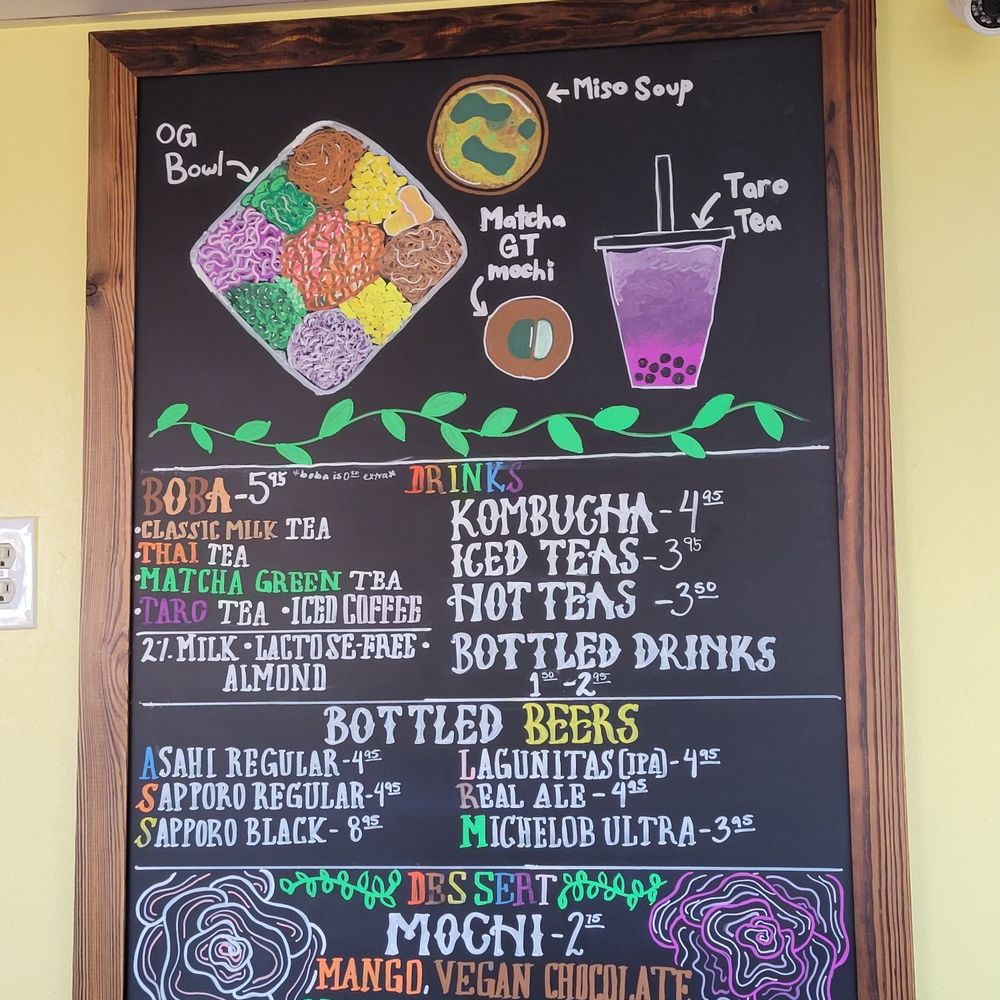 OG
Bowl
Miso Soup
Matcha
GT
mochi
Taro
Tea
DRINKS
BOBA-5⁹⁵ *boba is 0⁵⁰ extra*
•CLASSIC MILK TEA
•THAI TEA
•MATCHA GREEN TEA
•TARO TEA •ICED COFFEE
2% MILK • LACTOSE-FREE •
ALMOND
KOMBUCHA-4⁹⁵
ICED TEAS-3⁹⁵
HOT TEAS -3⁵⁰
BOTTLED DRINKS
1⁵⁰ -2⁹⁵
BOTTLED BEERS
ASAHI REGULAR-4⁹⁵
SAPPORO REGULAR-4⁹⁵
SAPPORO BLACK- 8⁹⁵
LAGUNITAS (IPA)-4⁹⁵
REAL ALE - 4⁹⁵
MICHELOB ULTRA-3⁹⁵
DESSERT
MOCHI-2⁷⁵
MANGO, VEGAN CHOCOLATE